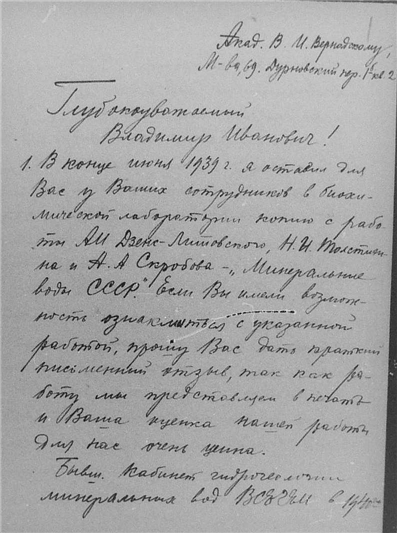 Акад. В. И. Вернадскому,
М-ва, 69. Дурновский пер. 1б кв 2
Глубокоуважаемый
Владимир Иванович!
1. В конце июня 1939 г. я оставил для
Вас у Ваших сотрудников в биохи-
мической лаборатории копию с рабо-
ты АИ Дзенс-Литовского, Н.И. Толстихи-
на и А. А Скробова - „Минеральные
воды СССР." Если Вы имели возмож-
ность ознакомиться с указанной
работой, прошу Вас дать краткий
письменный отзыв, так как ра-
боту мы представляем в печать
и Ваша оценка нашей работы
для нас очень ценна.
Бывш. Кабинет гидрогеологии
минеральных вод ВСЕГЕИ в